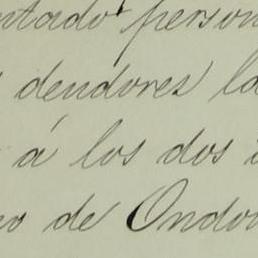 ntado person
deudores la
á los dos
eo de Ondo